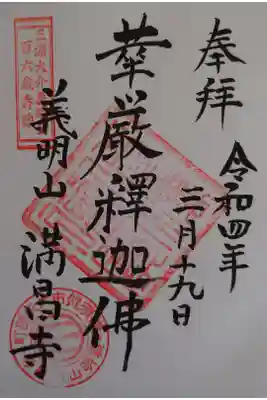 奉拝
令和四年
三月十九日
華厳釋迦佛
三浦大介
百六歳
義明山 満昌寺